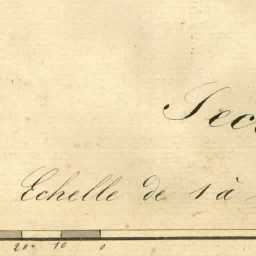 Sec
Echelle de 1 à
20 10 0